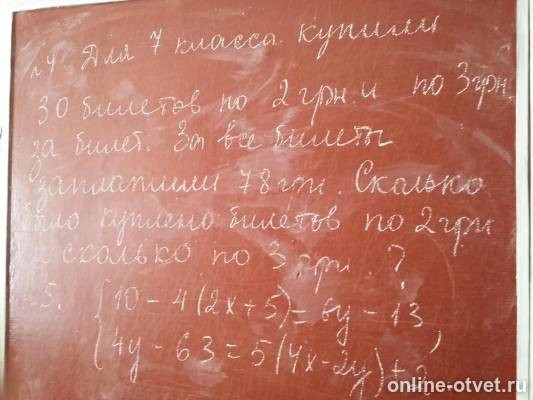 №4. Для 7 класса купили
30 билетов по 2 грн. и по 3 грн.
за билет. За все билеты
заплатили 78 грн. Сколько
было куплено билетов по 2 грн
и сколько по 3 грн.?
№5. {10 - 4(2x+5) = 6y - 13,
{4y - 63 = 5(4x-2y) + 2
online-otvet.ru